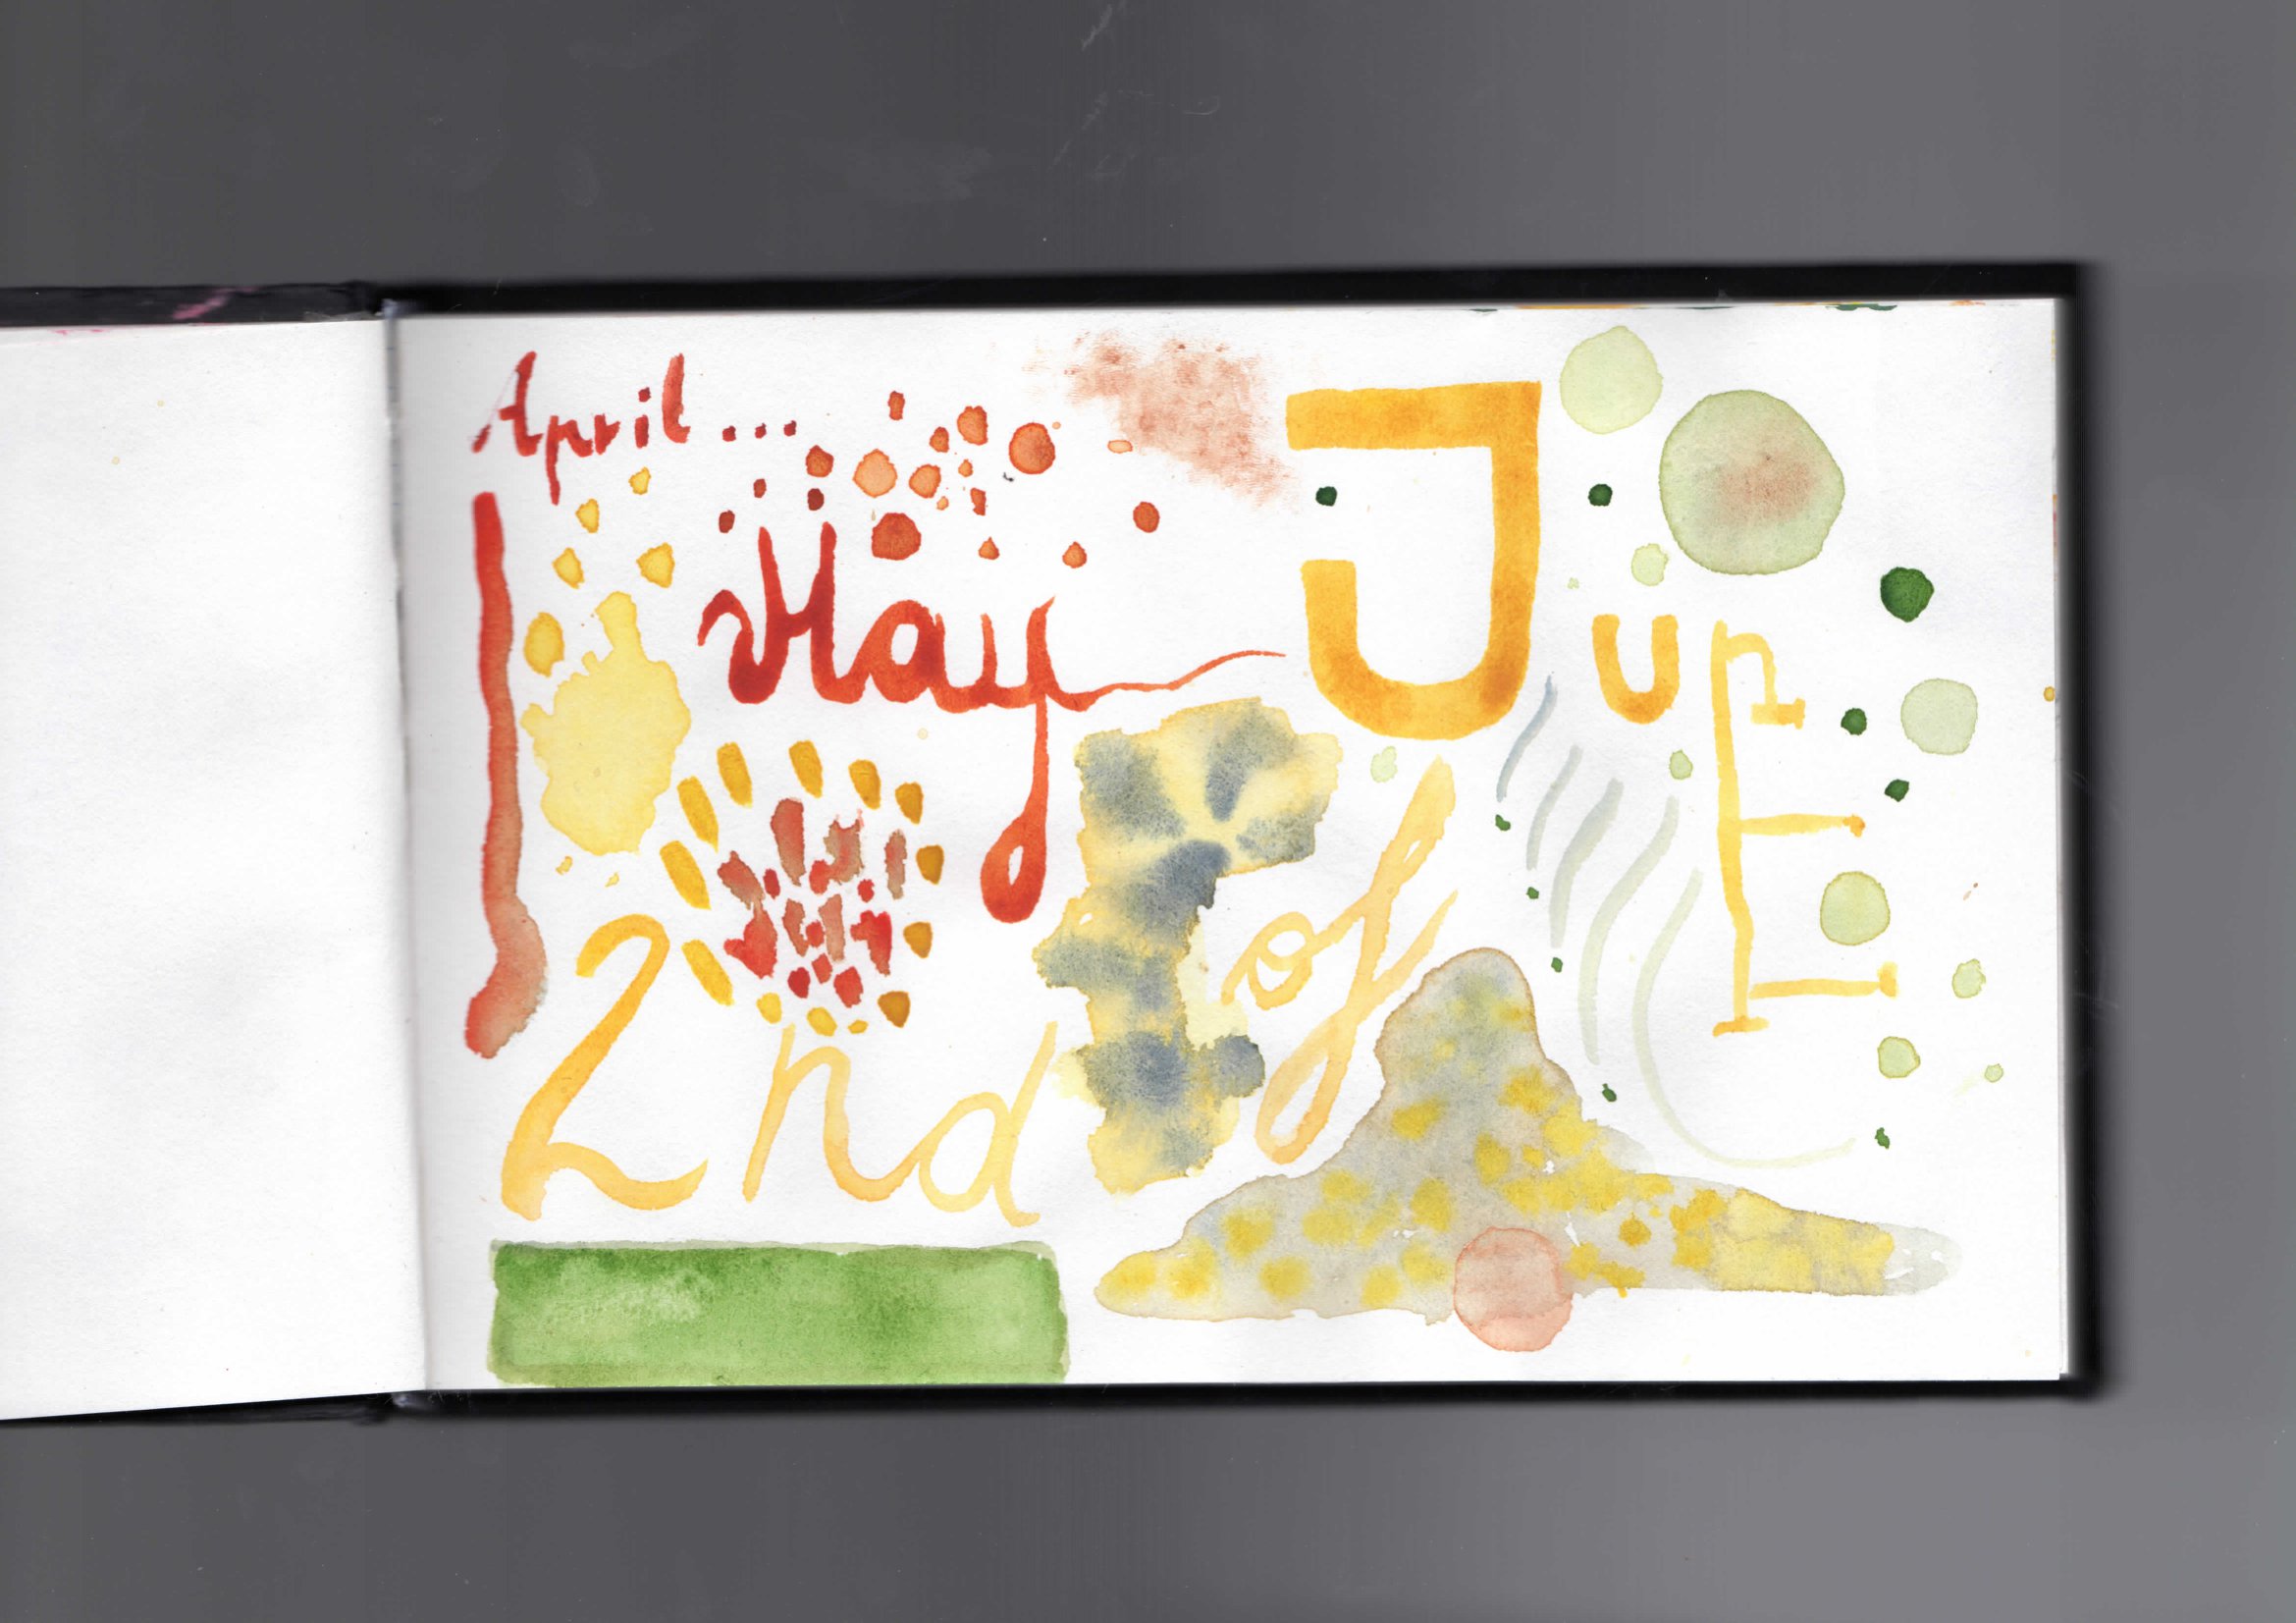 April...
May
JunE
2nd of